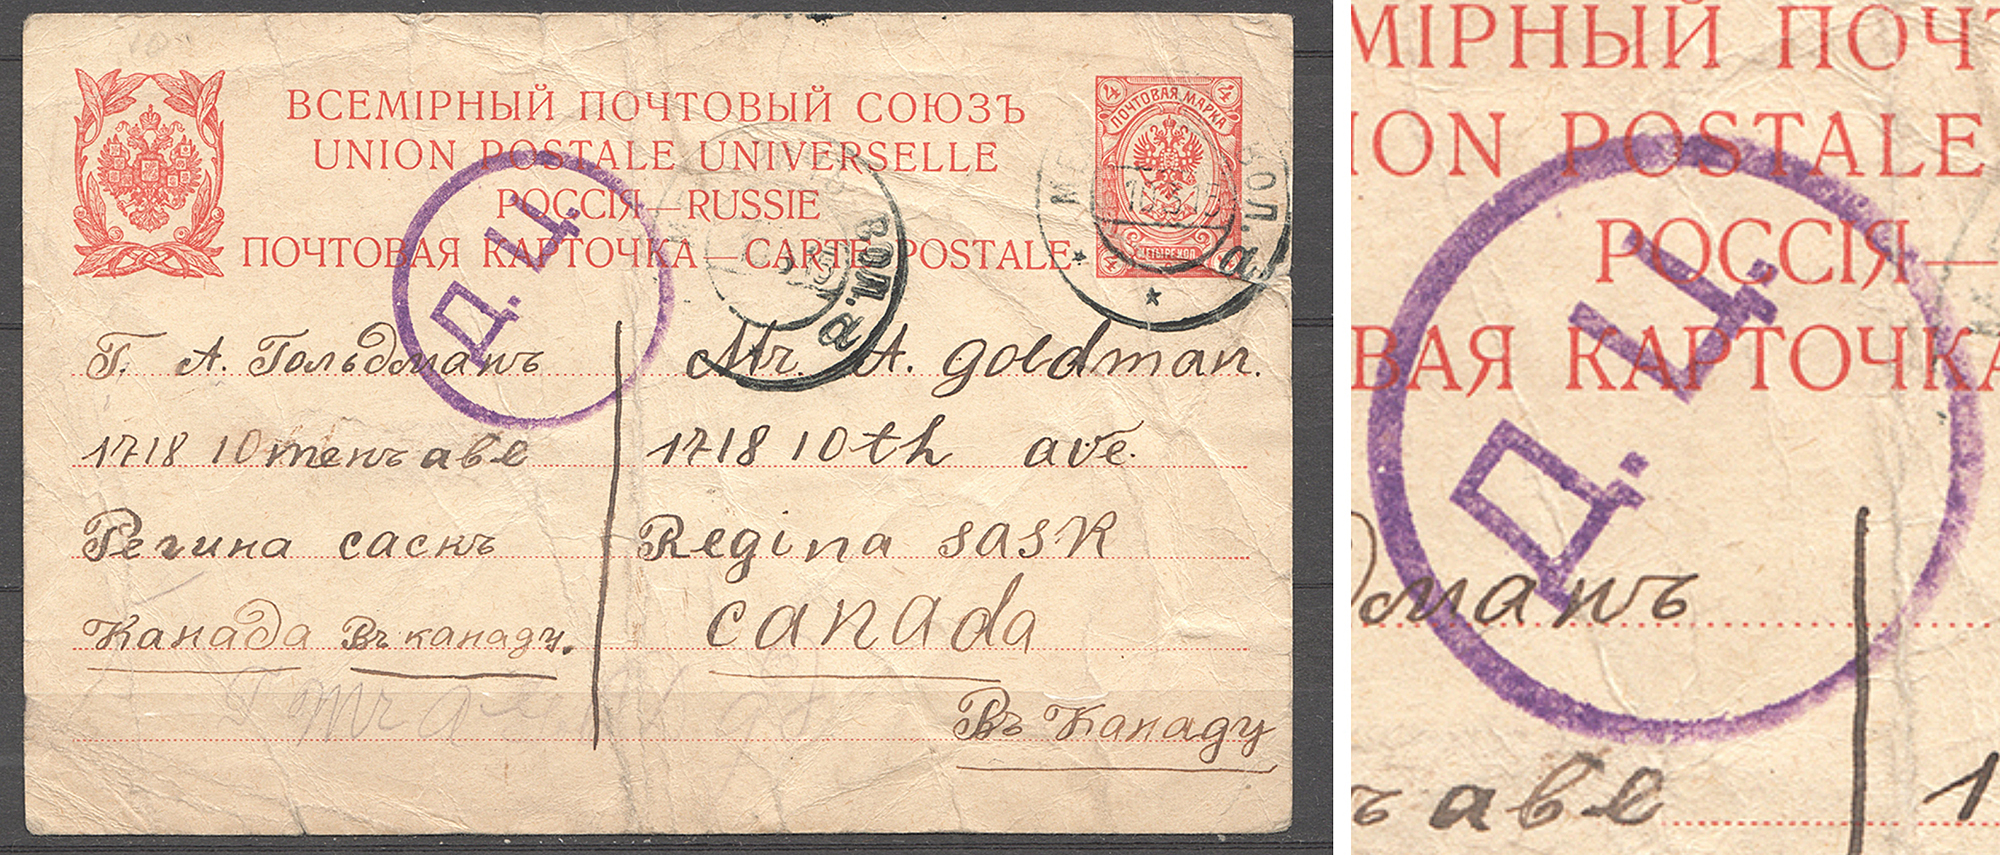 ВСЕМІРНЫЙ ПОЧТОВЫЙ СОЮЗЪ
UNION POSTALE UNIVERSELLE
РОССІЯ—RUSSIE
ПОЧТОВАЯ КАРТОЧКА—CARTE POSTALE
4 4
ПОЧТОВАЯ МАРКА
4
ВОЛ.
а
ВОЛ.
а
Д. Ц.
Г. А. Гольдманъ
1718 10 тенъ аве
Регина саскъ
Канада Въ канаду.
Mr. A. goldman.
1718 10th ave.
Regina sask
canada
Въ Канаду
МІРНЫЙ ПОЧТ
ION POSTALE
РОССІЯ—
ВАЯ КАРТОЧКА
Д. Ц.
дманъ
ъ аве 1